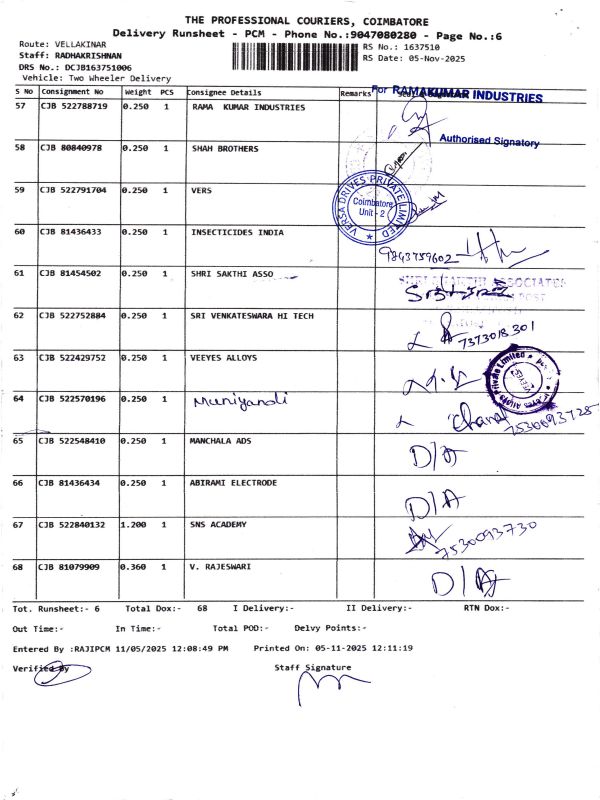 THE PROFESSIONAL COURIERS, COIMBATORE
Delivery Runsheet - PCM - Phone No.:9047080280 - Page No.:6
Route: VELLAKINAR
RS No.: 1637510
Staff: RADHAKRISHNAN
RS Date: 05-Nov-2025
DRS No.: DCJB163751006
Vehicle: Two Wheeler Delivery
S No Consignment No Weight PCS Consignee Details Remarks
For RAMAKUMAR INDUSTRIES
57 CJB 522788719 0.250 1 RAMA KUMAR INDUSTRIES
Authorised Signatory
58 CJB 80840978 0.250 1 SHAH BROTHERS
59 CJB 522791704 0.250 1 VERS
VERSA DRIVES PRIVATE LIMITED
Coimbatore
Unit - 2
60 CJB 81436433 0.250 1 INSECTICIDES INDIA
9843759602
61 CJB 81454502 0.250 1 SHRI SAKTHI ASSO
62 CJB 522752884 0.250 1 SRI VENKATESWARA HI TECH
7373018301
63 CJB 522429752 0.250 1 VEEYES ALLOYS
64 CJB 522570196 0.250 1 Muniyandi
65 CJB 522548410 0.250 1 MANCHALA ADS D/A
66 CJB 81436434 0.250 1 ABIRAMI ELECTRODE D/A
67 CJB 522840132 1.200 1 SNS ACADEMY
7530093730
68 CJB 81079909 0.360 1 V. RAJESWARI D/A
Tot. Runsheet:- 6 Total Dox:- 68 I Delivery:- II Delivery:- RTN Dox:-
Out Time:- In Time:- Total POD:- Delvy Points:-
Entered By :RAJIPCM 11/05/2025 12:08:49 PM Printed On: 05-11-2025 12:11:19
Verified By Staff Signature